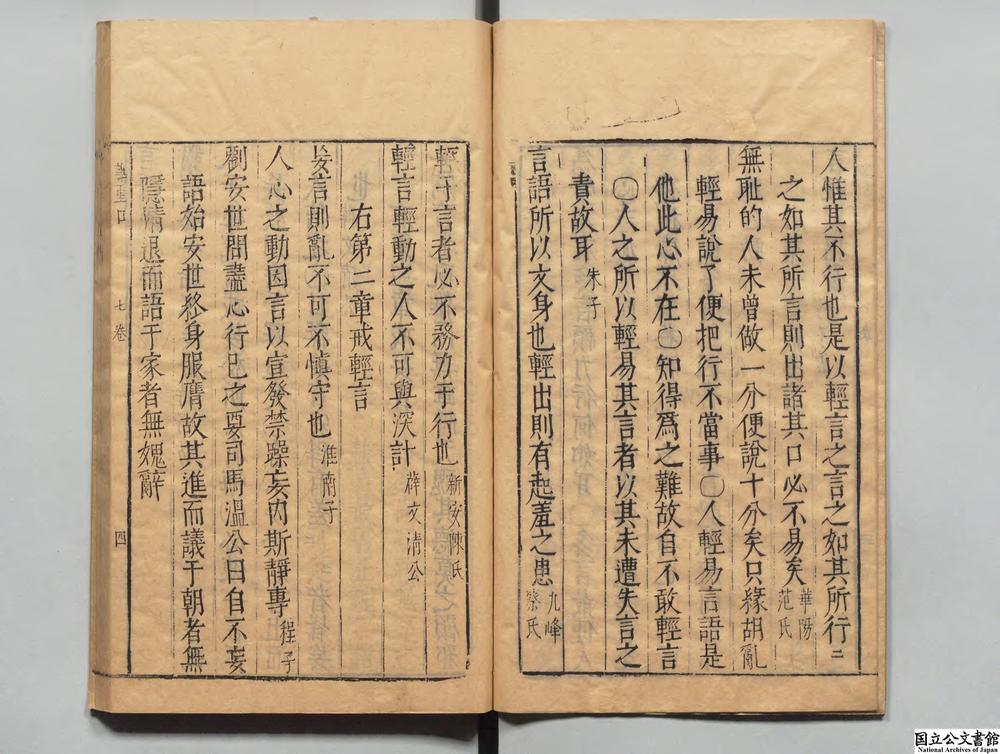 人惟其不行也是以輕言之言之如其所行行
之如其所言則出諸其口必不易矣華陽范氏
無恥的人未曾做一分便說十分矣只緣胡亂
輕易說了便把行不當事〇人輕易言語是
他此心不在〇知得爲之難故自不敢輕言
〇人之所以輕易其言者以其未遭失言之
責故耳朱子
言語所以文身也輕出則有起羞之患九峰蔡氏
輕于言者必不務力于行也新安陳氏
輕言輕動之人不可與深計薛文清公
右第二章戒輕言
妄言則亂不可不慎守也淮南子
人心之動因言以宣發禁躁妄內斯靜專程子
劉安世問盡心行己之要司馬溫公曰自不妄
語始安世終身服膺故其進而議于朝者無
隱情退而語于家者無媿辭
七卷
四
国立公文書館
National Archives of Japan